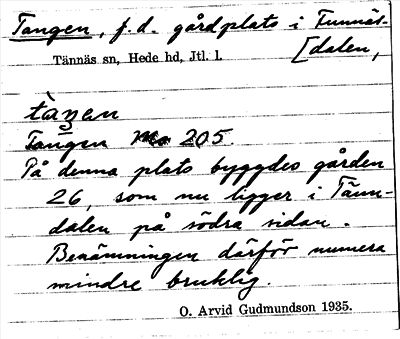 Tangen, f.d. gårdplats i Funnäs-
[dalen,
Tännäs sn, Hede hd, Jtl. l.
tàŋen
Tangen No 205.
På denna plats byggdes gården
26, som nu ligger i Tänn-
dalen på södra sidan.
Benämningen därför numera
mindre bruklig.
O. Arvid Gudmundson 1935.